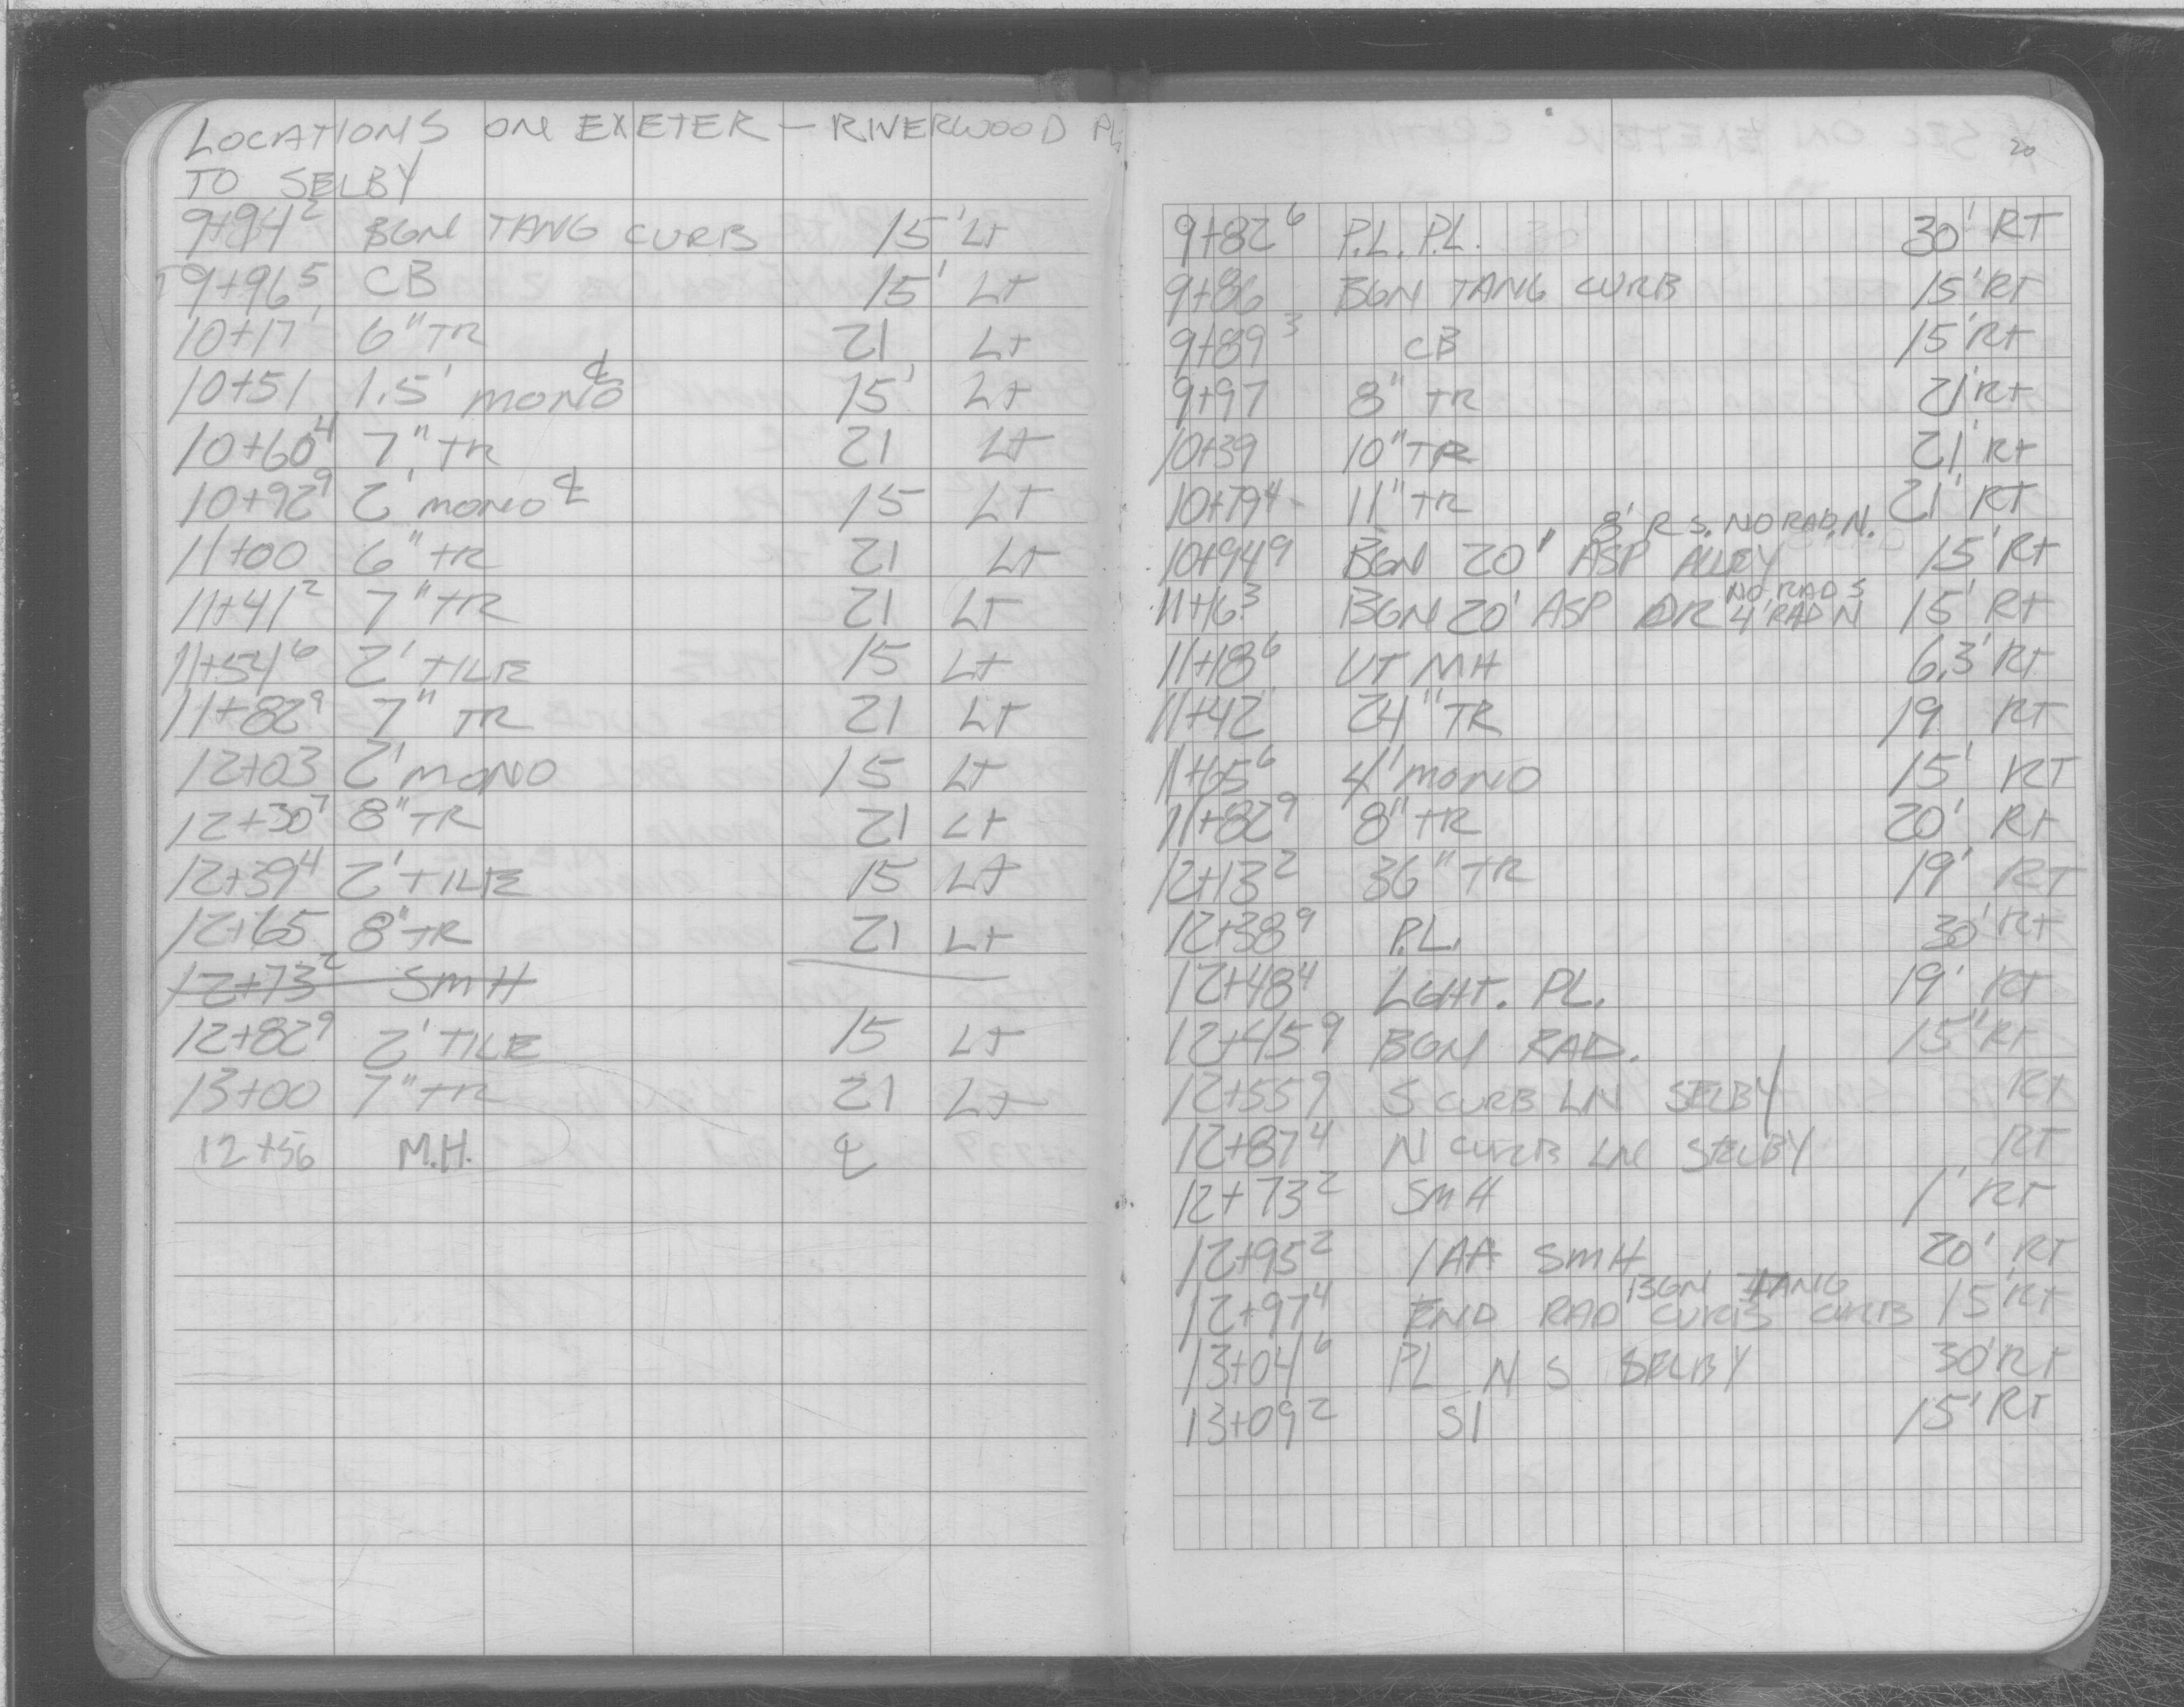 LOCATIONS ON EXETER — RIVERWOOD PL
TO SELBY
9+94² BGN TANG CURB 15' Lt
9+96⁵ CB 15' Lt
10+17 6" TR 21 Lt
10+51 1.5' MONO ℄ 15' Lt
10+60⁴ 7" TR 21 Lt
10+92⁹ 2' MONO ℄ 15 Lt
11+00 6" TR 21 Lt
11+41² 7" TR 21 Lt
11+54⁶ 2' TILE 15 Lt
11+82⁹ 7" TR 21 Lt
12+03 2' MONO 15 Lt
12+30⁷ 8" TR 21 Lt
12+39⁴ 2' TILE 15 Lt
12+65 8" TR 21 Lt
12+73² SMH
12+82⁹ 2' TILE 15 Lt
13+00 7" TR 21 Lt
12+56 M.H. ℄
20
9+82⁶ P.L. P.L. 30' RT
9+86 BGN TANG CURB 15' RT
9+89³ CB 15' Rt
9+97 8" TR 21' Rt
10+39 10" TR 21' Rt
10+79⁴ 11" TR 21' RT
8' R S. NO RAD. N.
10+94⁹ BGN 20' ASP ALLEY 15' Rt
NO RAD S
11+16³ BGN 20' ASP DR 4' RAD N 15' Rt
11+18⁶ UT MH 6.3' Rt
11+42 24" TR 19 RT
11+65⁶ 4' MONO 15' RT
11+82⁹ 8" TR 20' Rt
12+13² 36" TR 19' RT
12+38⁹ P.L. 30' Rt
12+48⁴ LGHT. PL. 19' RT
12+45⁹ BGN RAD. 15' Rt
12+55⁹ S CURB LN SELBY Rt
12+87⁴ N CURB LN SELBY RT
12+73² SMH 1' RT
12+95² 1AA SMH 20' RT
BGN TANG
12+97⁴ END RAD CURB CURB 15' Rt
13+04⁶ PL N S SELBY 30' Rt
13+09² S1 15' RT